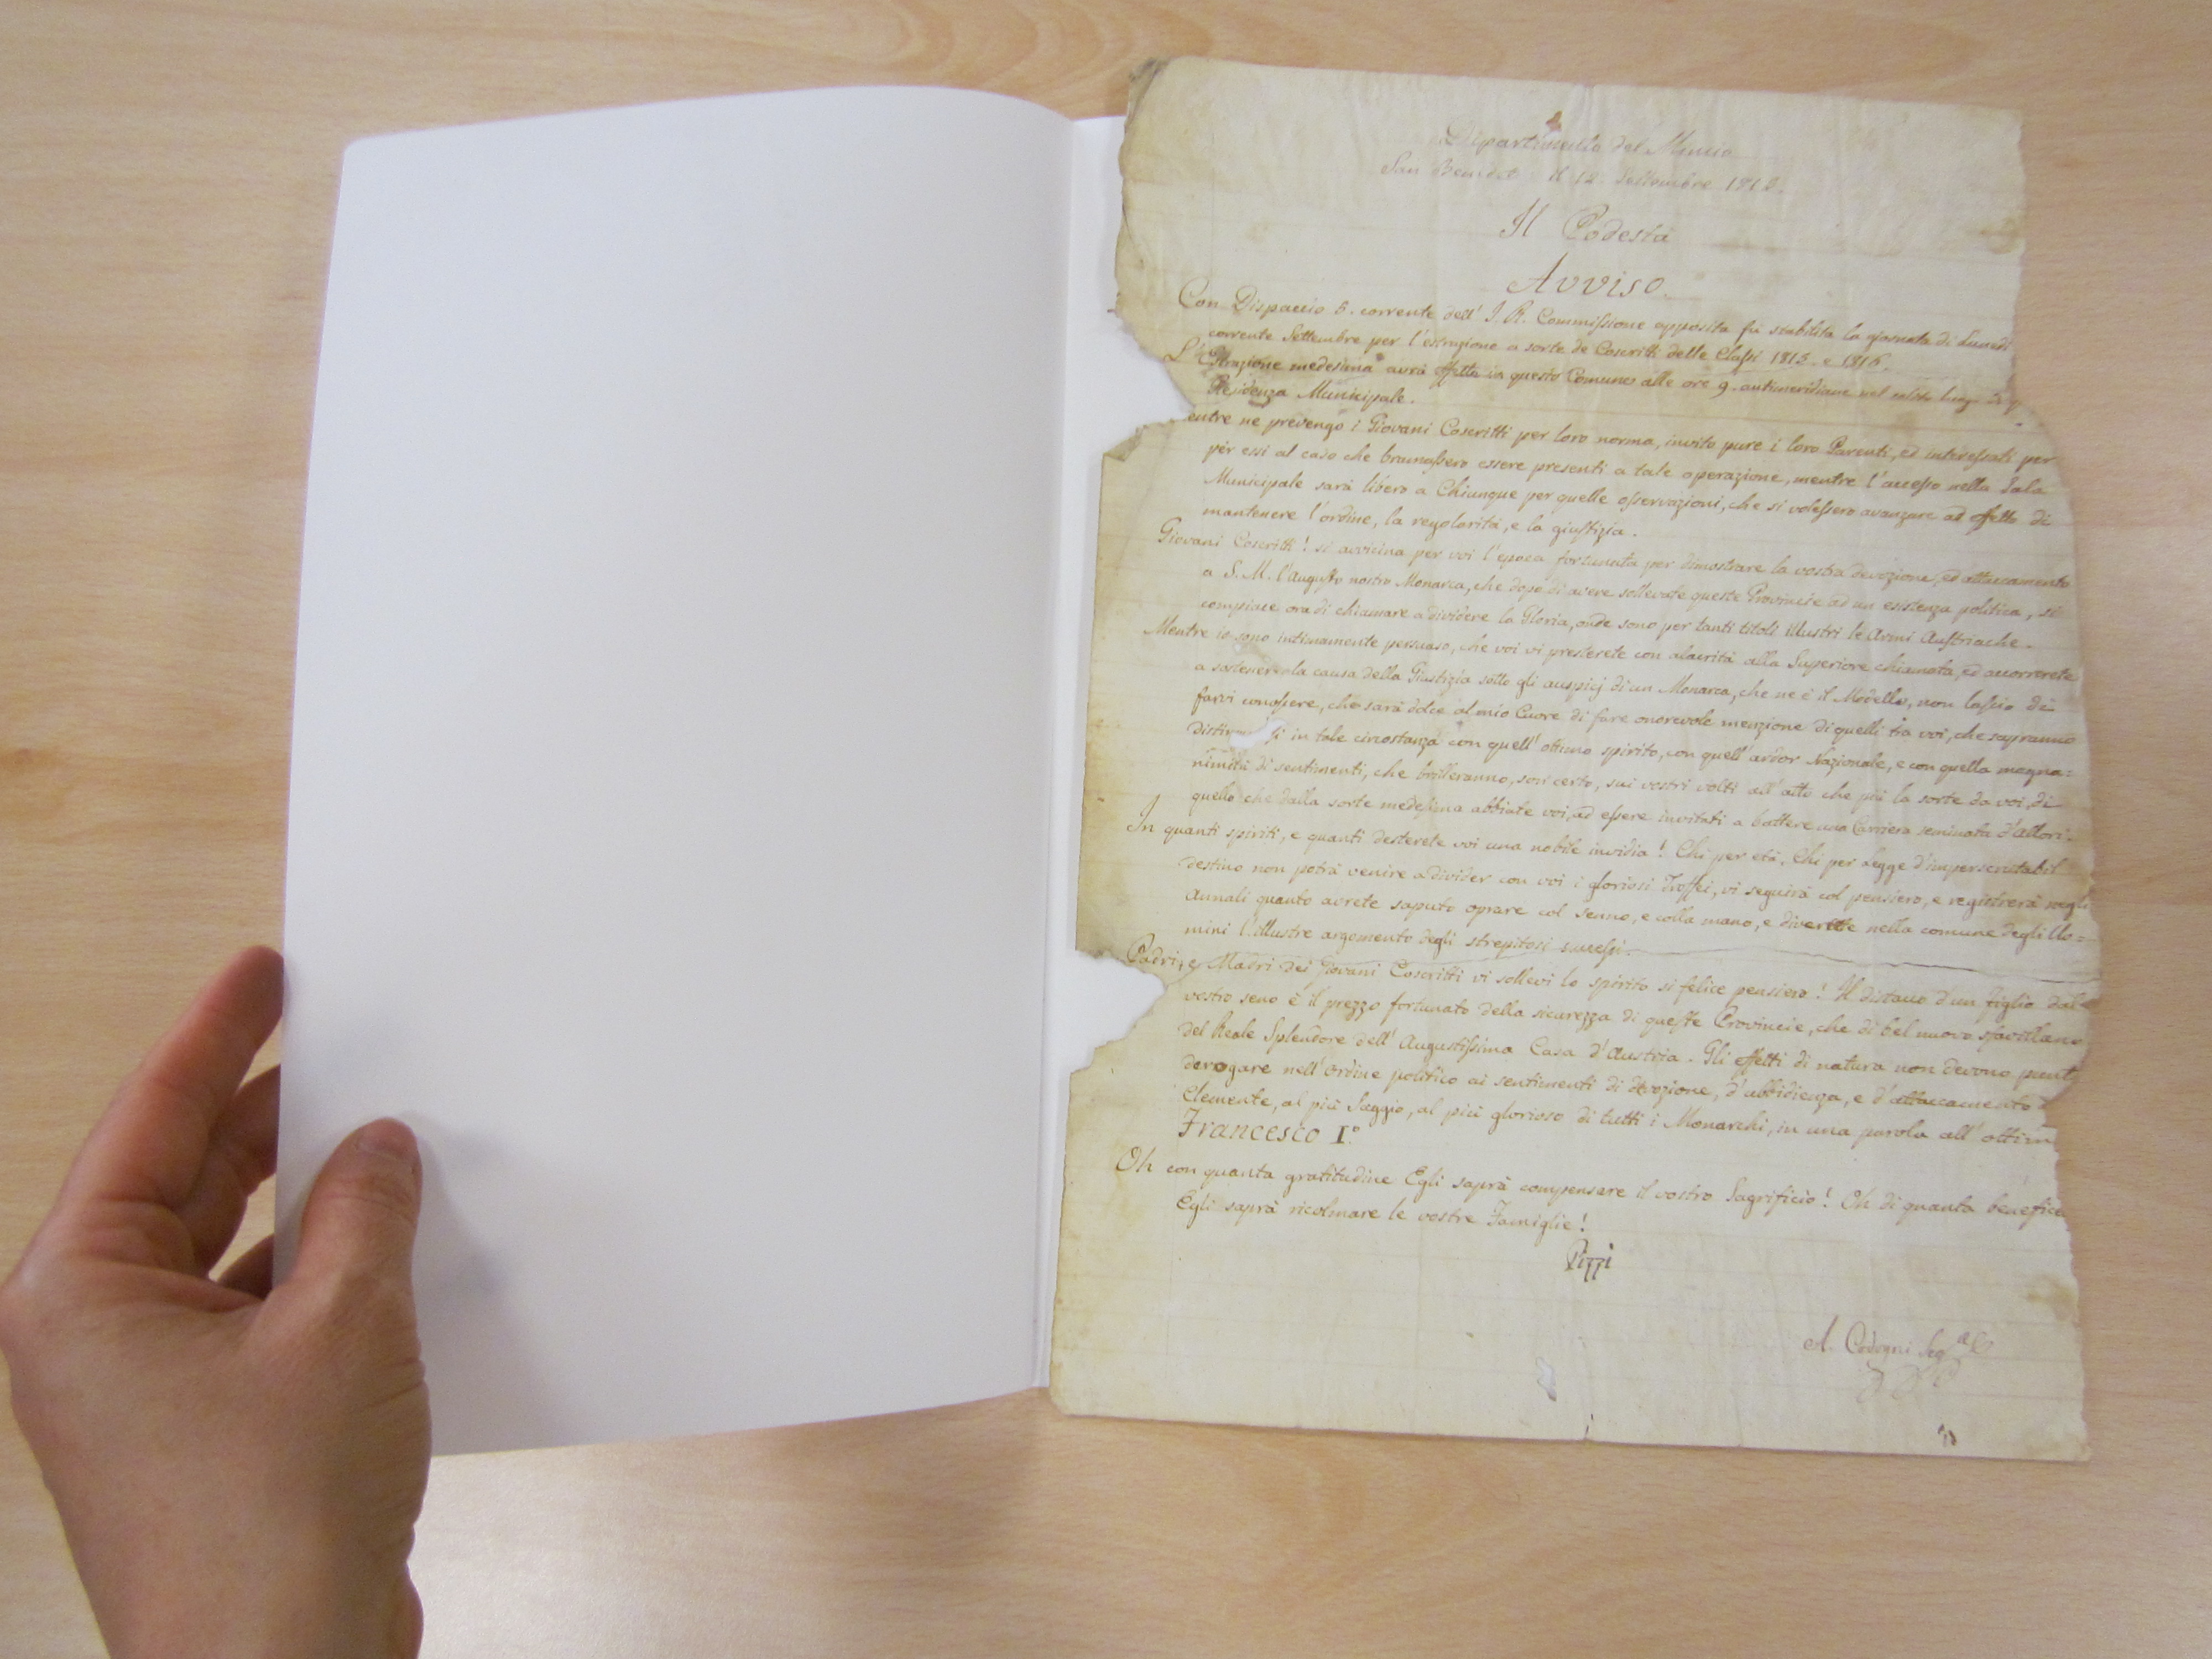 Dipartimento del Mincio
San Benedet Il 12. Settembre 181
Il Podestà
Avviso.
Con Dispaccio 5. corrente dell' I. R. Commissione apposita fù stabilita la giornata di Lunedi
corrente Settembre per l'estrazione a sorte de Coscritti delle Classi 1815. e 1816.
L'Estrazione medesima avrà effetto in questo Comune alle ore 9. antimeridiane nel solito luogo di
Residenza Municipale.
entre ne prevengo i Giovani Coscritti per loro norma, invito pure i loro Parenti, ed interessati per
per essi al caso che bramassero essere presenti a tale operazione, mentre l'accesso nella Sala
Municipale sarà libero a Chiunque per quelle osservazioni, che si volessero avanzare ad effetto di
mantenere l'ordine, la regolarità, e la giustizia.
Giovani Coscritti! si avvicina per voi l'epoca fortunata per dimostrare la vostra devozione, ed attaccamento
a S. M. l'Augusto nostro Monarca, che dopo di avere sollevate queste Provincie ad un esistenza politica, si
compiace ora di chiamare a dividere la Gloria, onde sono per tanti titoli illustri le Armi Austriache.
Mentre io sono intimamente persuaso, che voi vi presterete con alacrità alla Superiore chiamata, ed accorrerete
a sostenere la causa della Giustizia sotto gli auspicj di un Monarca, che ne è il Modello, non lascio di
farvi conoscere, che sarà dolce al mio Cuore di fare onorevole menzione di quelli tra voi, che sapranno
disting si in tale circostanza con quell' ottimo spirito, con quell' ardor Nazionale, e con quella magna=
nimità di sentimenti, che brilleranno, son certo, sui vostri volti all' atto che più la sorte da voi, di
quello che dalla sorte medesima abbiate voi, ad essere invitati a battere una Carriera seminata d'allori.
In quanti spiriti, e quanti desterete voi una nobile invidia! Chi per età, Chi per Legge d'imperscrutabil
destino non potrà venire a divider con voi i gloriosi Troffei, vi seguirà col pensiero, e registrerà negli
annali quanto avrete saputo oprare col senno, e colla mano, e diverrete nella comune degli Uo=
mini l'illustre argomento degli strepitosi successi.
Padri, e Madri dei Giovani Coscritti vi sollevi lo spirito si felice pensiero! Il distacco d'un figlio dal
vostro seno è il prezzo fortunato della sicurezza di queste Provincie, che di bel nuovo sfavillano
del Reale Splendore dell' Augustissima Casa d'Austria. Gli effetti di natura non devono punt
derogare nell' ordine politico ai sentimenti di devozione, d'ubbidienza, e d'attaccamento
Clemente, al più Saggio, al più glorioso di tutti i Monarchi, in una parola all' ottim
Francesco I.º
Oh con quanta gratitudine Egli saprà compensare il vostro Sagrificio! Oh di quanta benefice
Egli saprà ricolmare le vostre Famiglie!
Pizzi
A. Codogni Seg